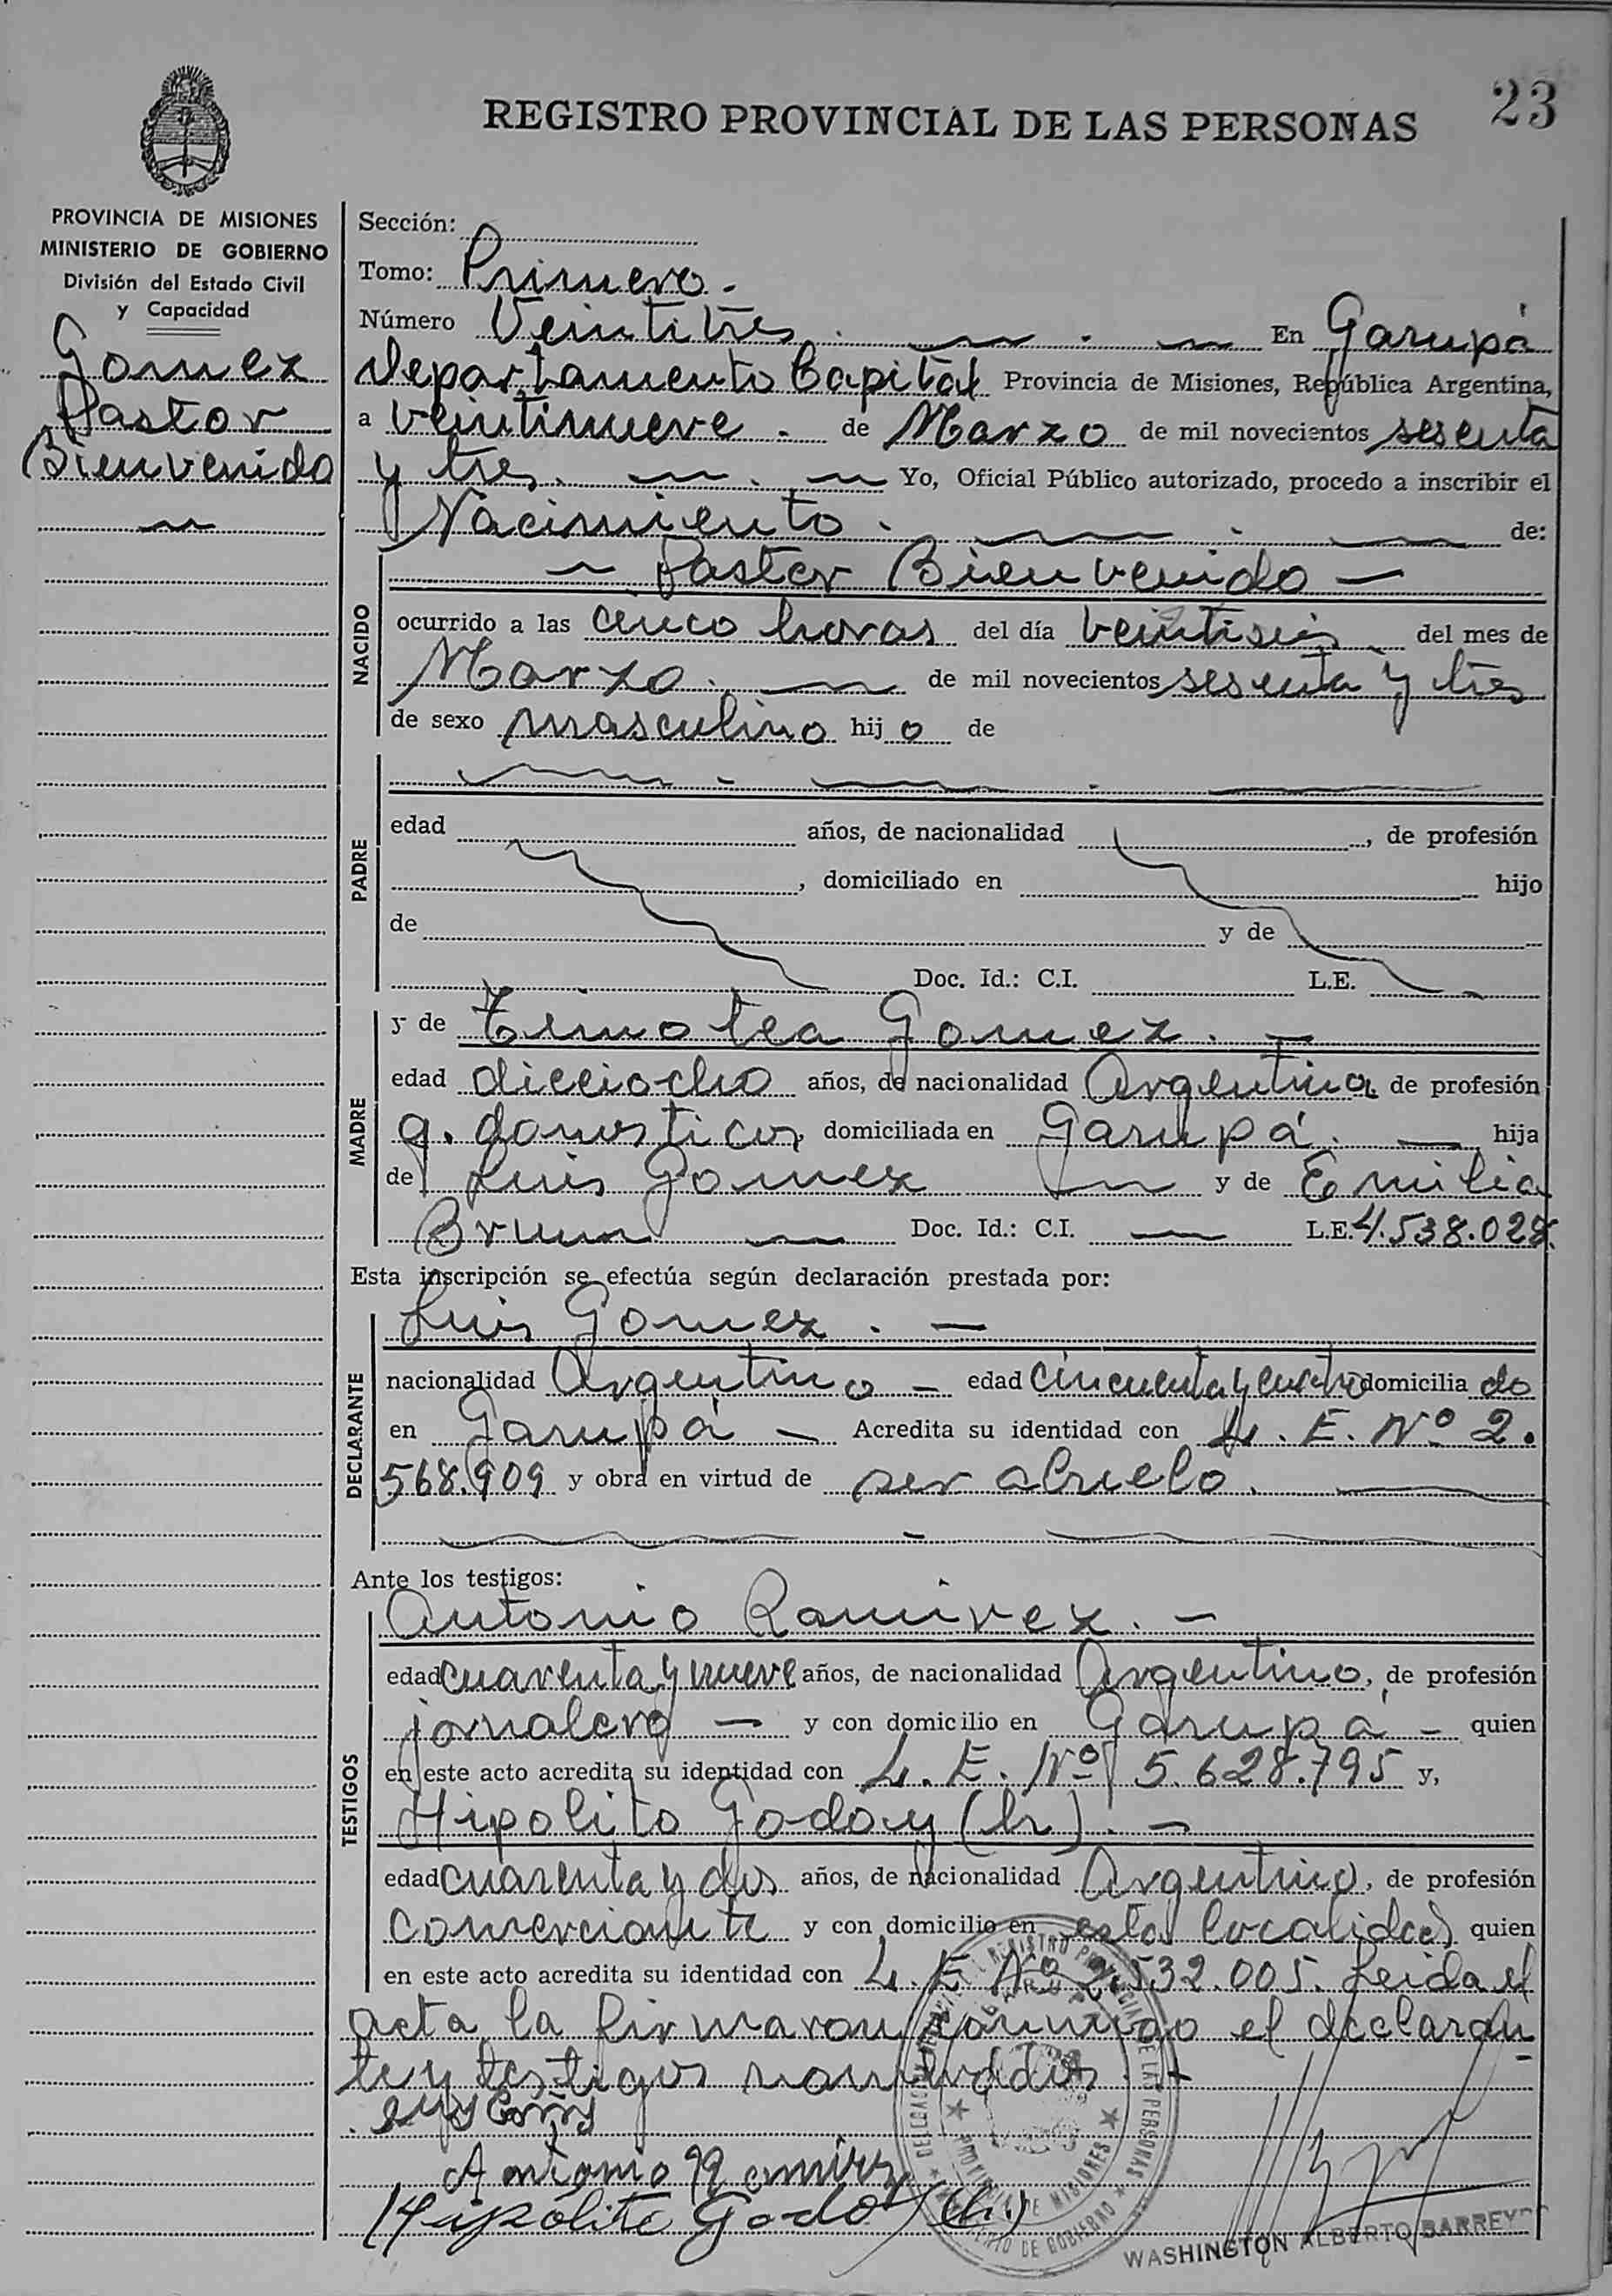 23
REGISTRO PROVINCIAL DE LAS PERSONAS
PROVINCIA DE MISIONES
MINISTERIO DE GOBIERNO
División del Estado Civil
y Capacidad
Gomez
Pastor
Bienvenido
Sección:
Tomo: Primero.-
Número Veintitres. En Garupá
Departamento Capital Provincia de Misiones, República Argentina,
a veintinueve. de Marzo de mil novecientos sesenta
y tres. Yo, Oficial Público autorizado, procedo a inscribir el
Nacimiento. de:
NACIDO
Pastor Bienvenido
ocurrido a las cinco horas del día veintiseis del mes de
Marzo. de mil novecientos sesenta y tres
de sexo masculino hijo de
PADRE
edad años, de nacionalidad , de profesión
, domiciliado en hijo
de y de
Doc. Id.: C.I. L.E.
MADRE
y de Timotea Gomez. -
edad dieciocho años, de nacionalidad Argentina de profesión
q. domesticos, domiciliada en Garupá. hija
de Luis Gomez y de Emilia
Doc. Id.: C.I. L.E. 4.538.028.
Esta inscripción se efectúa según declaración prestada por:
DECLARANTE
Luis Gomez. -
nacionalidad Argentino - edad cincuenta y cuatro domiciliado
en Garupá - Acredita su identidad con L. E. Nº 2.
568.909 y obra en virtud de ser abuelo.
Ante los testigos:
TESTIGOS
Antonio Ramirez. -
edad cuarenta y nueve años, de nacionalidad Argentino, de profesión
jornalero - y con domicilio en Garupá - quien
en este acto acredita su identidad con L. E. Nº 5.628.795 y,
Hipolito Godoy (h). -
edad cuarenta y dos años, de nacionalidad Argentino, de profesión
comerciante y con domicilio en esta localidad quien
en este acto acredita su identidad con L. E. Nº 2.532.005. Leida el
acta la firmaron conmigo el declaran
te y testigos nombrados. -
Antonio Ramirez
Hipólito Godoy (h.)
MINISTERIO DE GOBIERNO
PROVINCIA DE MISIONES
WASHINGTON ALBERTO BARREY